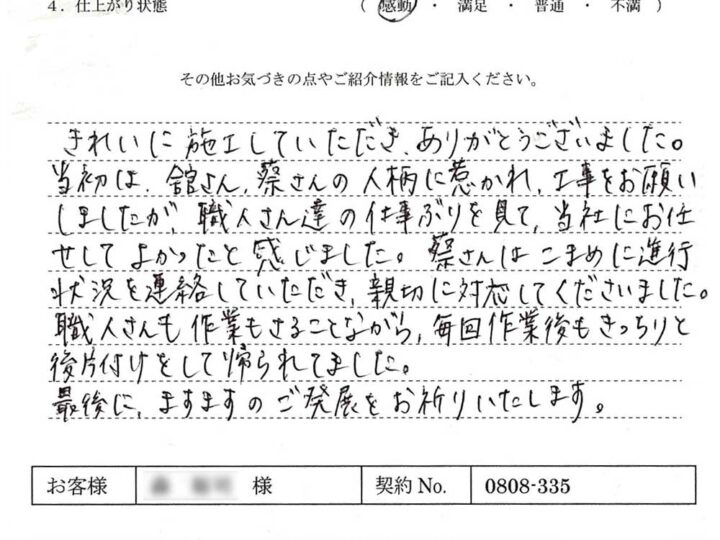 4. 仕上がり状態 ( 感動 ・ 満足 ・ 普通 ・ 不満 )
その他お気づきの点やご紹介情報をご記入ください。
きれいに施工していただき、ありがとうございました。
当初は、舘さん、蔡さんの人柄に惹かれ、工事をお願い
しましたが、職人さん達の仕事ぶりを見て、当社にお任
せしてよかったと感じました。蔡さんはこまめに進行
状況を連絡していただき、親切に対応してくださいました。
職人さんも作業もさることながら、毎回作業後もきっちりと
後片付けをして帰られてました。
最後に、ますますのご発展をお祈りいたします。
お客様 様 契約 No. 0808-335